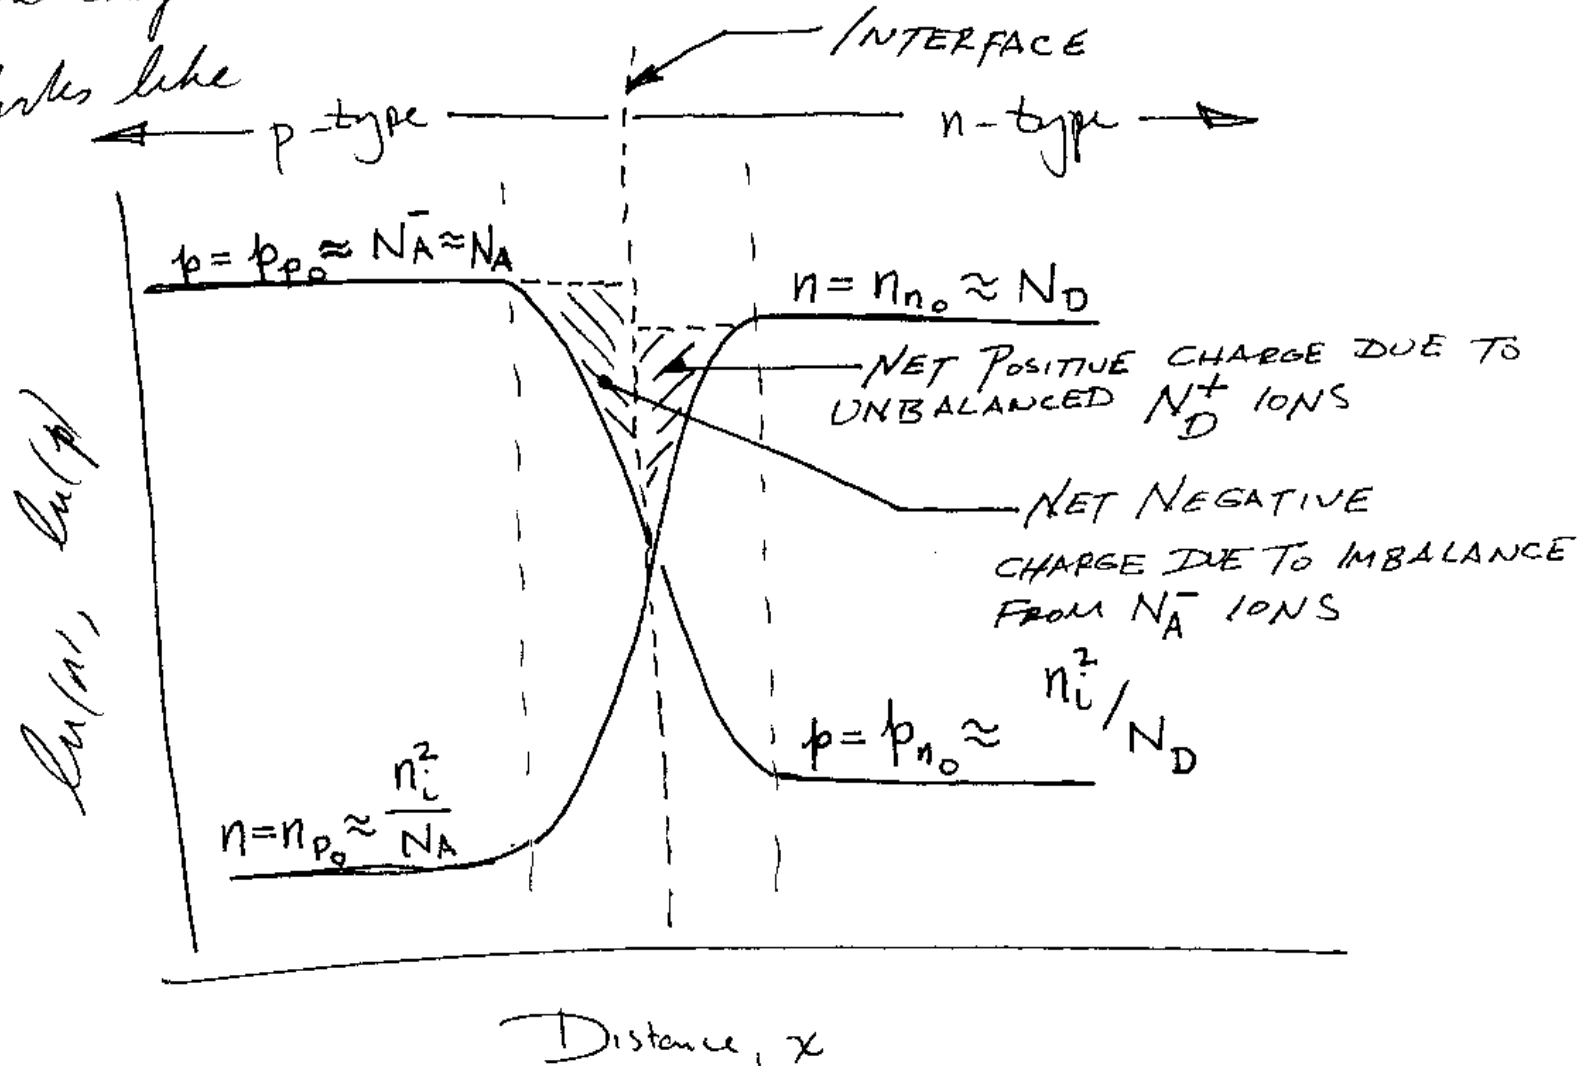 like
INTERFACE
p-type
n-type
p = p_{p_0} ≈ N_A^- ≈ N_A
n = n_{n_0} ≈ N_D
NET POSITIVE CHARGE DUE TO
UNBALANCED N_D^+ IONS
NET NEGATIVE
CHARGE DUE TO IMBALANCE
FROM N_A^- IONS
ln(n), ln(p)
p = p_{n_0} ≈ n_i^2 / N_D
n = n_{p_0} ≈ n_i^2 / N_A
Distance, x